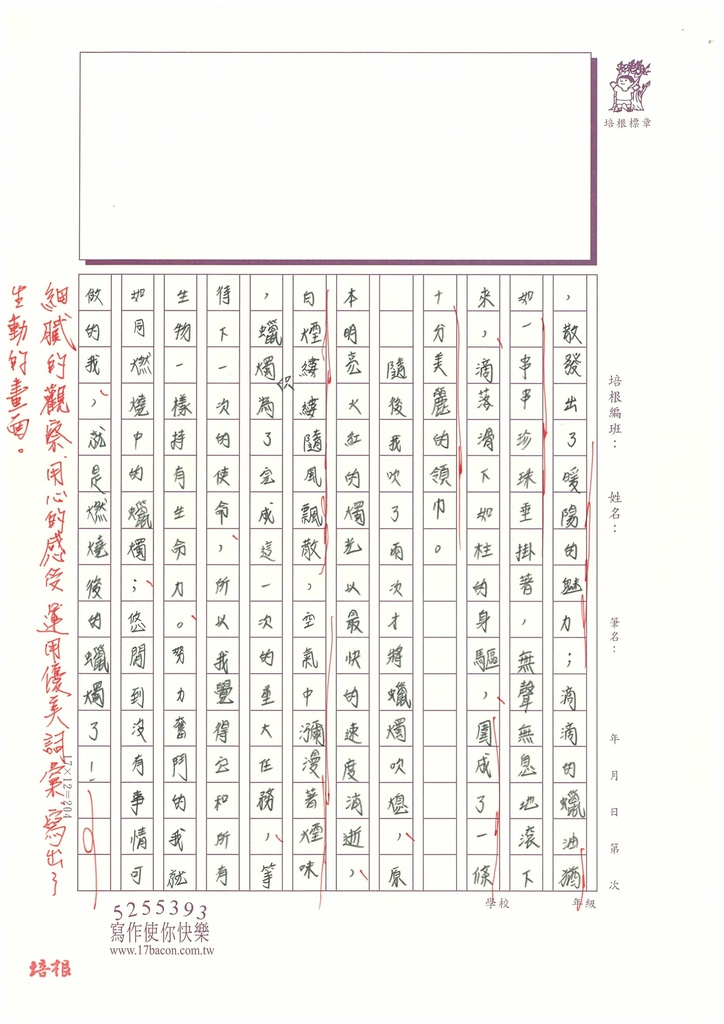 培根標章
培根編班：
姓名：
筆名：
年 月 日 第 次
學校
年級
，散發出了暖陽的魅力；滴滴的蠟油猶
如一串串珍珠垂掛著，無聲無息地滾下
來，滴落滑下如柱的身驅，圍成了一條
十分美麗的領巾。
隨後我吹了兩次才將蠟燭吹熄，原
本明亮火紅的燭光以最快的速度消逝，
白煙縷縷隨風飄散，空氣中瀰漫著煙味
，蠟燭為了完成這一次的重大任務，等
待下一次的使命，所以我覺得它和所有
生物一樣持有生命力。努力奮鬥的我就
如同燃燒中的蠟燭；悠閒到沒有事情可
做的我，就是燃燒後的蠟燭了！
17×12=204
細膩的觀察.用心的感受 運用優美詞彙寫出了
生動的畫面。
培根
5255393
寫作使你快樂
www.17bacon.com.tw